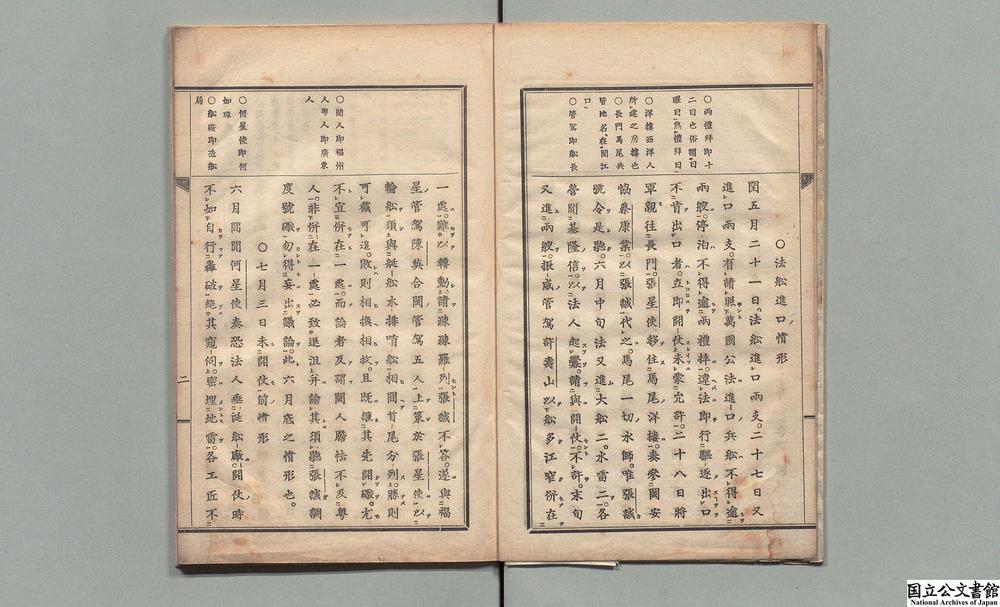 ○法舩進口情形
閏五月二十一日法舩進口兩支。二十七日又
進口兩支。有請照萬國公法進口兵舩不得逾
兩艘。停泊不得逾兩禮拜。違法即行驅逐出口
不肯出口者。立即開仗。未蒙允許。二十八日將
軍親往長門。張星使移住馬尾洋樓。奏參閩安
恊蔡康業。以張誠代之。馬尾一切水師。唯張誠
號令是聽。六月中旬法又進大舩二。水雷二。各
營聞基隆信。以法人起釁。請與開仗。不許。末旬
又進兩艘。振威管駕許壽山以舩多江窄併在
○兩禮拜即十
二日也俗謂日
曜日爲禮拜日
○洋樓西洋人
所建之房樓也
○長門馬尾共
皆地名在閩江
口
○管駕即舩長
一處。難以轉動。請疎疎羅列。張誠不答。遂與福
星管駕陳英合閩管駕五人。上策於張星使。以
輪舩須與艇舩水排哨舩相間首尾分列。勝則
可截可追。敗則相換相救。且既讓其先開礮。尤
不宜併在一處。而論者反謂閩人膽怯不及粤
人。非併在一處必致退沮。并論其須聽張誠調
度號礮。勿得妄出議論。此六月底之情形也。
○七月三日未開仗前情形
六月間聞何星使奏恐法人垂涎舩廠。開仗時
不如自行轟破絶其窺伺。密埋地雷。各工匠不
○閩人即福州
人粤人即廣東
人
○何星使即何
如璋
○舩廠即造舩
局
二
国立公文書館
National Archives of Japan